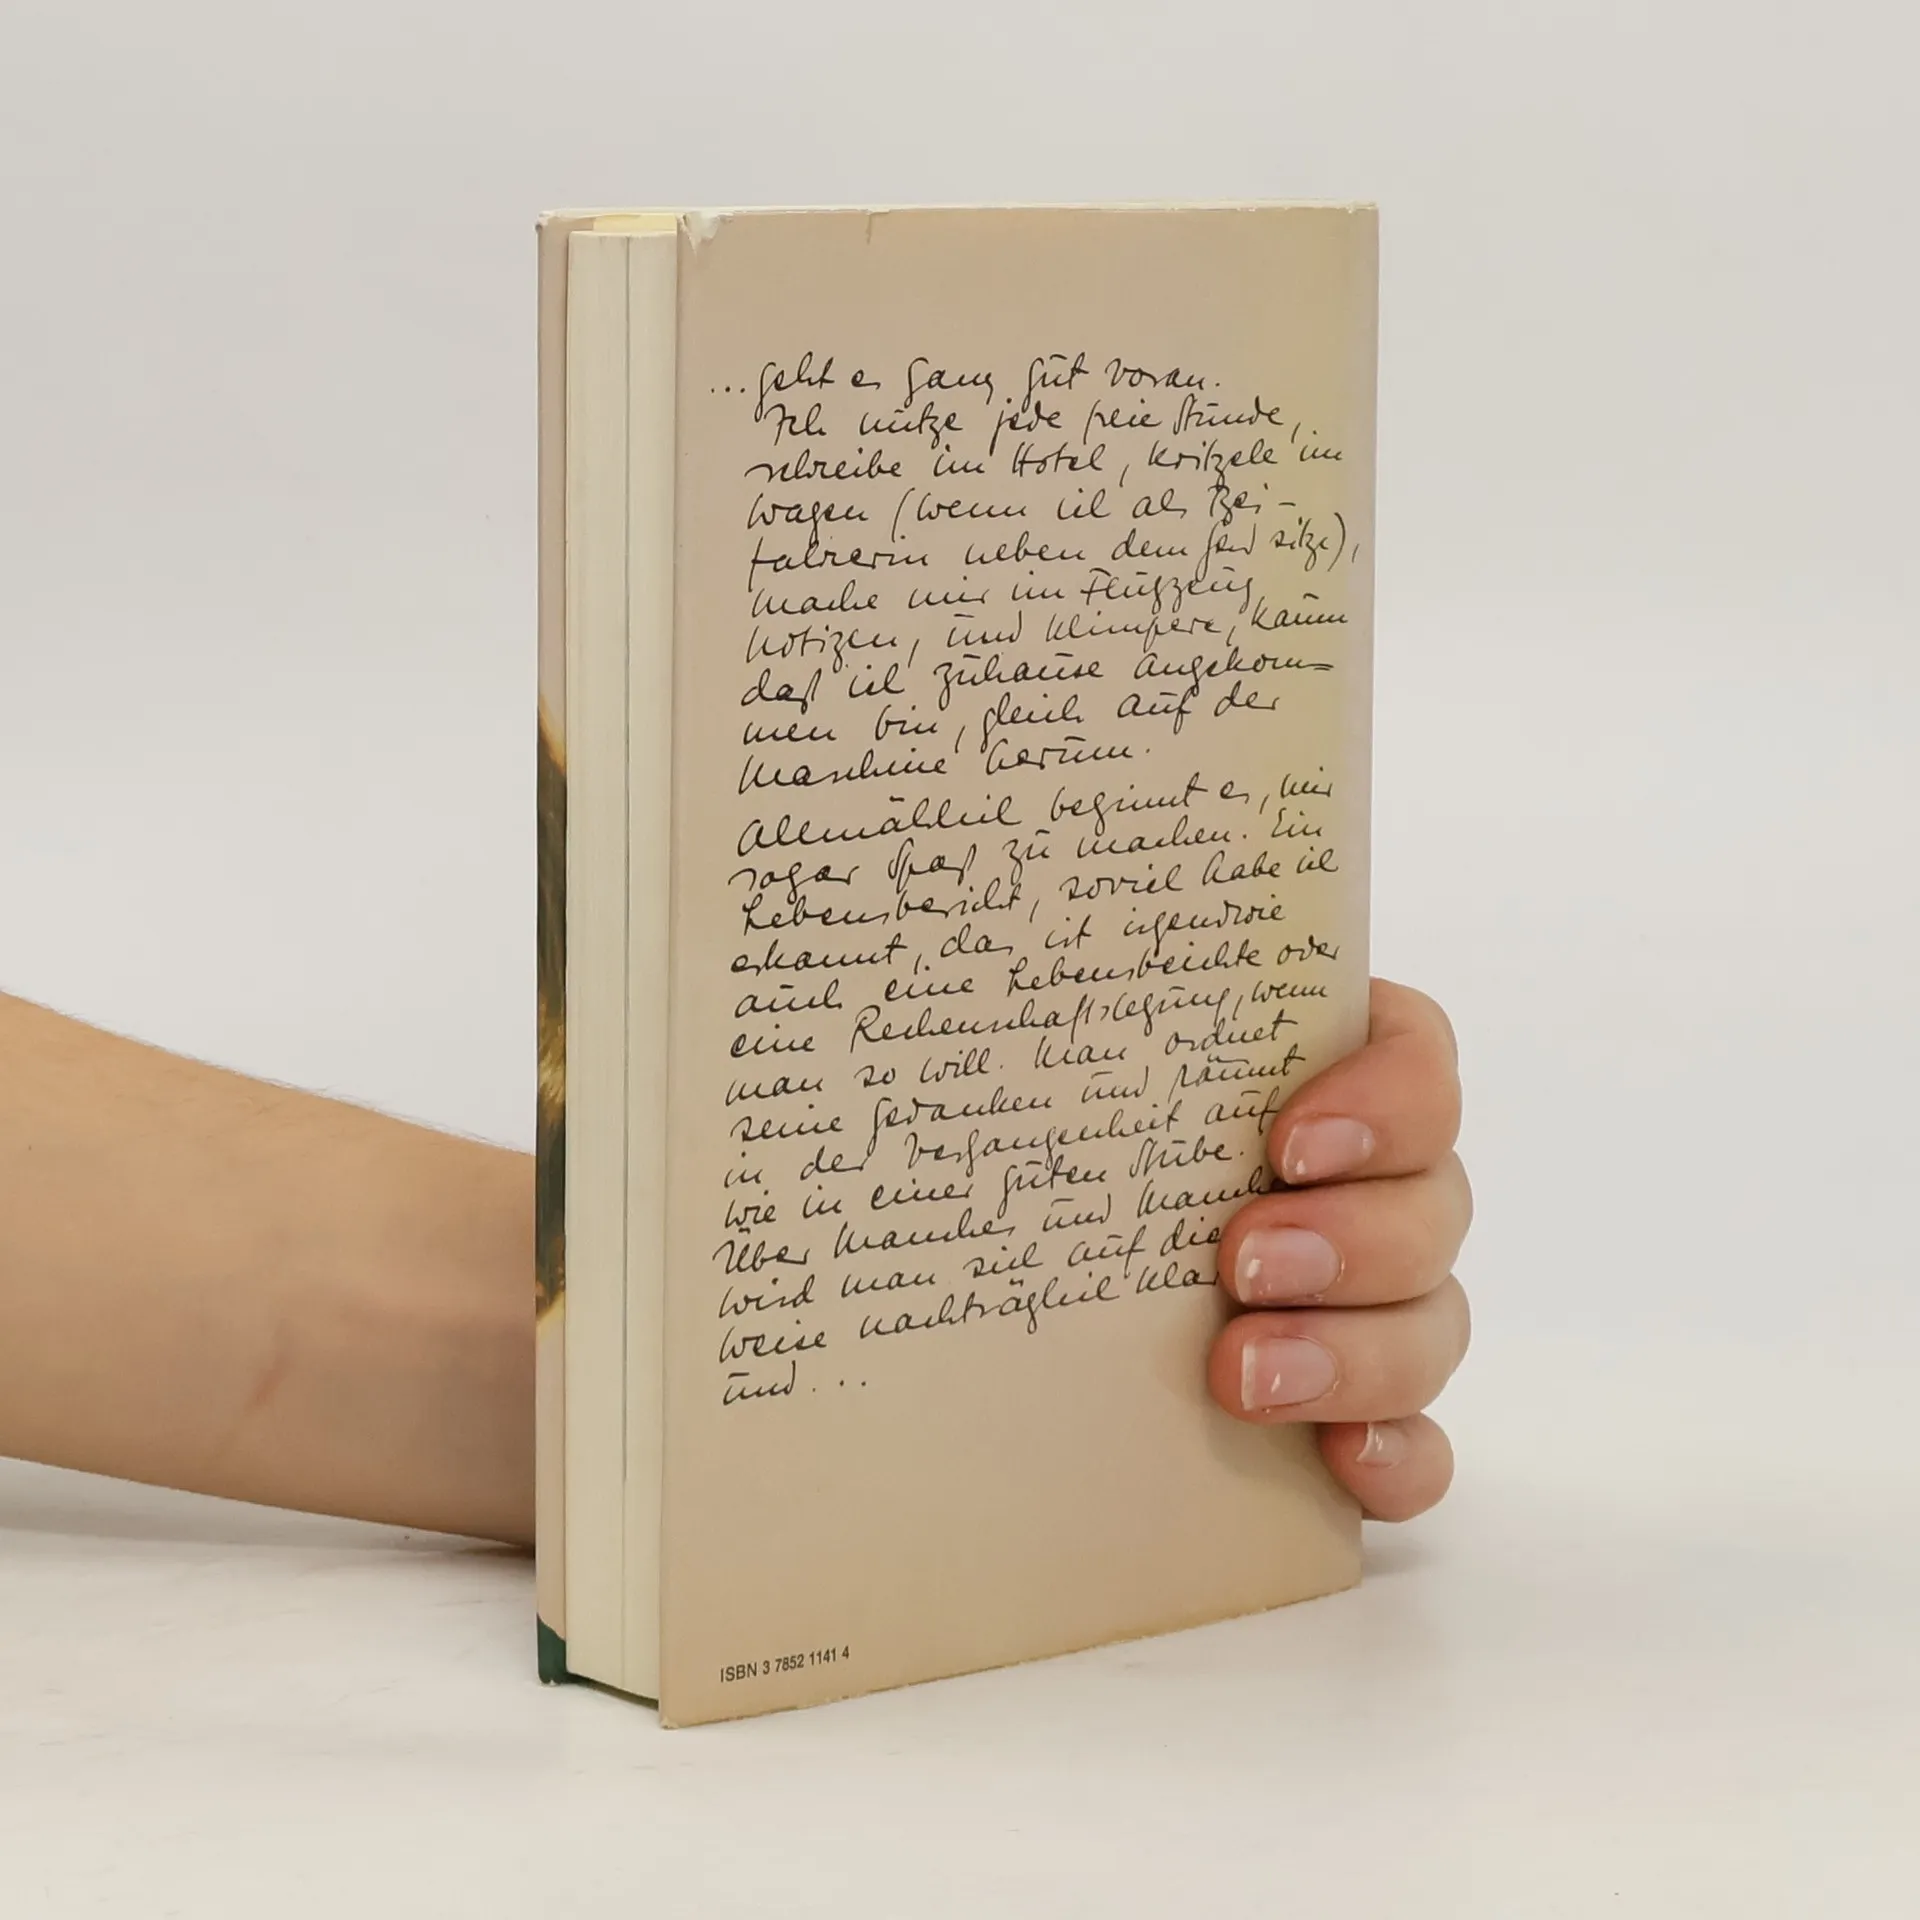 ...geht es ganz gut voran.
Ich nütze jede freie Stunde,
schreibe im Hotel, kritzele im
Wagen (wenn ich als Bei-
fahrerin neben dem Gerd sitze),
mache mir im Flugzeug
Notizen, und klimpere, kaum
daß ich zuhause angekom=
men bin, gleich auf der
Maschine herum.
Allmählich beginnt es, mir
sogar Spaß zu machen. Ein
Lebensbericht, soviel habe ich
erkannt, das ist irgendwie
auch eine Lebensbeichte oder
eine Rechenschaftslegung, wenn
man so will. Man ordnet
seine Gedanken und räumt
in der Vergangenheit auf
wie in einer guten Stube.
Über Manches und Manche
wird man sich auf die
Weise nachträglich klar
und...
ISBN 3 7852 1141 4